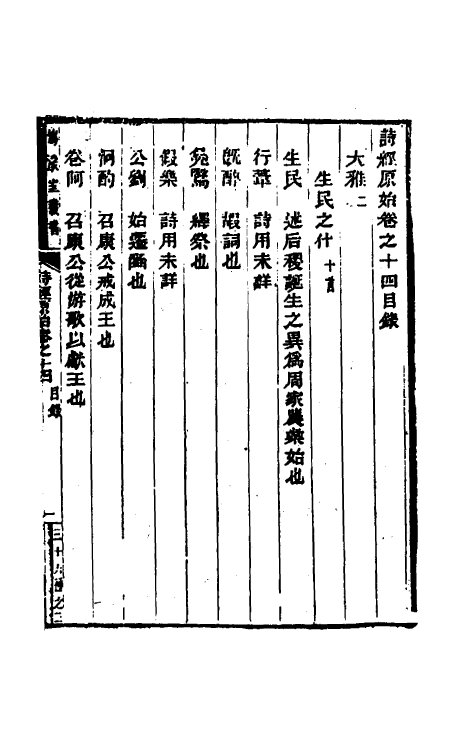 詩經原始卷之十四目錄
大雅二
生民之什 十首
生民 述后稷誕生之異爲周家農業始也
行葦 詩用未詳
既醉 嘏詞也
鳧鷖 繹祭也
假樂 詩用未詳
公劉 始遷豳也
泂酌 召康公戒成王也
卷阿 召康公從游歌以獻王也
詩經原始卷之十四 目錄 一